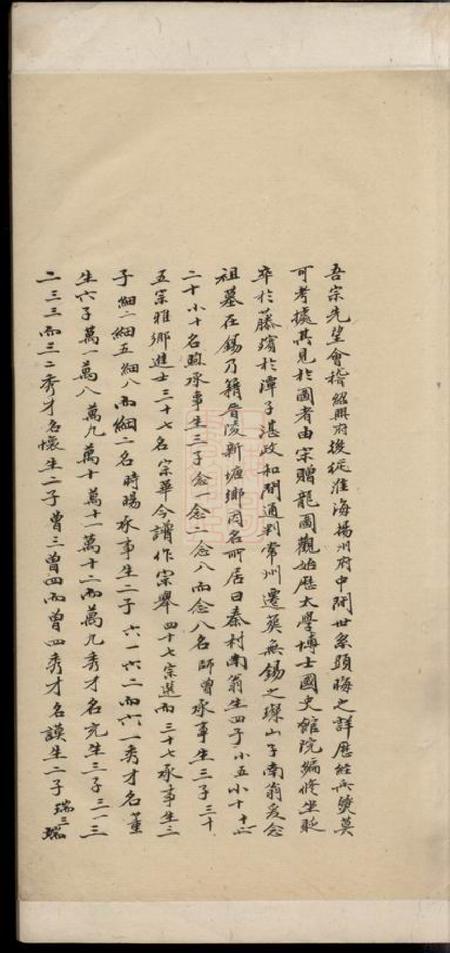 吾宗先望會稽紹興府後從淮海揚州府中間世系顕晦之詳歷經兵燹莫
可考據其見於圖者由宋贈龍圖觀始歷太學博士國史館院編修坐貶
卒於藤殯於潭子湛政和間通判常州遷葬無錫之璨山子南翁爰念
祖墓在錫乃籍晉陵新塘鄉因名所居曰秦村南翁生四子小五小十十六
二十小十名煦承事生三子念一念二念八而念八名師曾承事生三子三十
五宗雅鄉進士三十七名宗華今譜作宗舉四十七宗選而三十七承事生三
子細二細五細八而細二名時暘承事生二子六一六二而六一秀才名董
生六子萬一萬八萬九萬十萬十一萬十二而萬九秀才名允生三子三一三
二三三而三二秀才名懷生二子曾三曾四而曾四秀才名謨生二子瑞三瑞